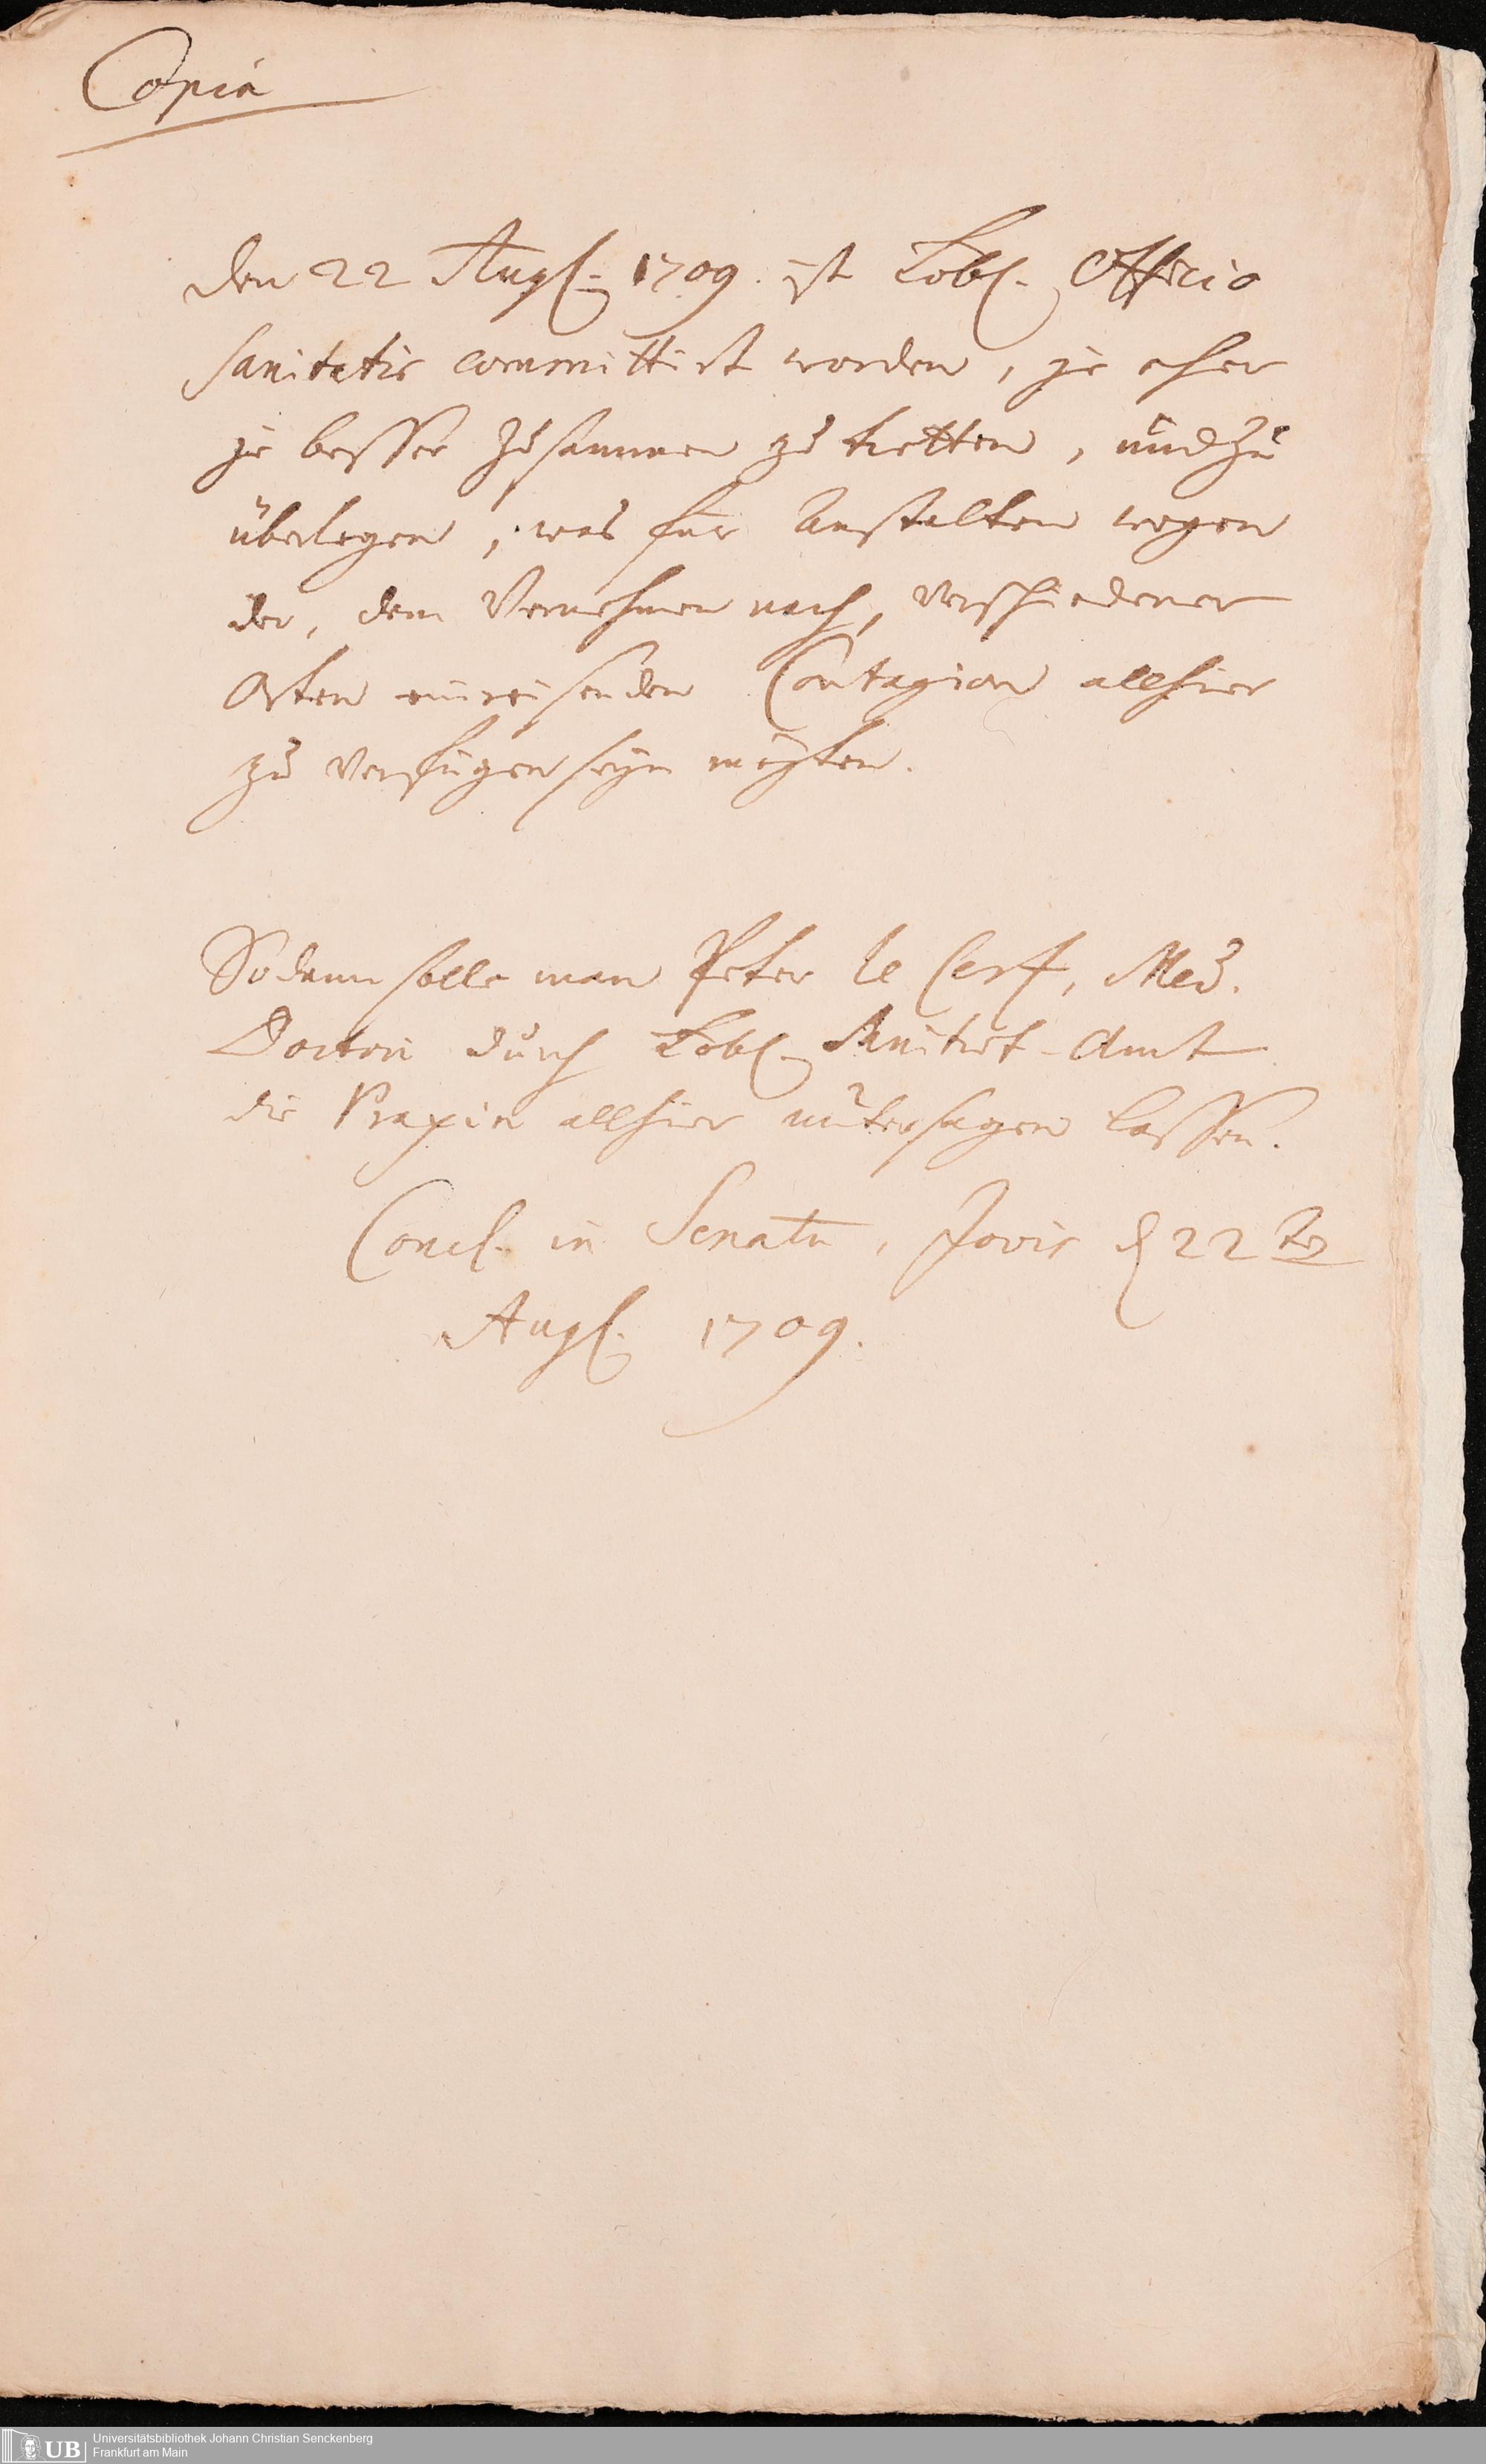 Copia
den 22 Augl. 1709. ist Löbl. Officio
sanitatis committirt worden, je eher
je besser zusammen zu tretten, und zu
überlegen, was für Anstalten wegen
der, dem Vernehmen nach, verschiedener
Orten einreisenden Contagion allhier
zu verfügen seyn mögten.
Sodann solle man Peter le Cerf, Med.
Doctori durch Löbl. Sanitæt-Amt
die Praxin allhier untersagen lassen.
Concl. in Senatu, Jovis d 22 ten
Augl. 1709.
UB
Universitätsbibliothek Johann Christian Senckenberg
Frankfurt am Main